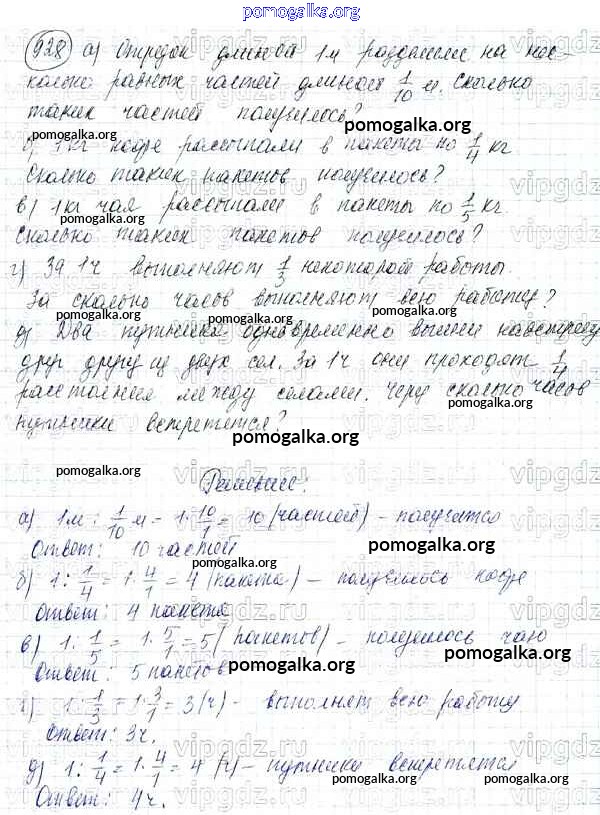 pomogalka.org
928 а) Отрезок длиной 1м разделили на нес-
колько равных частей длиной 1/10 м. Сколько
таких частей получилось?
pomogalka.org
б) 1 кг кофе рассыпали в пакеты по 1/4 кг
Сколько таких пакетов получилось?
в) 1 кг чая рассыпали в пакеты по 1/5 кг
pomogalka.org
Сколько таких пакетов получилось?
г) За 1ч выполняют 1/3 некоторой работы.
За сколько часов выполняют всю работу?
д) Два путника одновременно вышли навстречу
друг другу из двух сел. За 1ч они проходят 1/4
расстояния между селами. Через сколько часов
путники встретятся?
pomogalka.org
pomogalka.org
Решение:
pomogalka.org
а) 1м : 1/10 м = 1 · 10/1 = 10 (частей) – получится
Ответ: 10 частей
pomogalka.org
б) 1 : 1/4 = 1 · 4/1 = 4 (пакета) – получилось кофе
Ответ: 4 пакета
pomogalka.org
в) 1 : 1/5 = 1 · 5/1 = 5 (пакетов) – получилось чаю
Ответ: 5 пакетов
pomogalka.org
г) 1 : 1/3 = 1 · 3/1 = 3 (ч) – выполнят всю работу
Ответ: 3ч.
pomogalka.org
д) 1 : 1/4 = 1 · 4/1 = 4 (ч) – путники встретятся
pomogalka.org
pomogalka.org
Ответ: 4ч.
vipgdz.ru